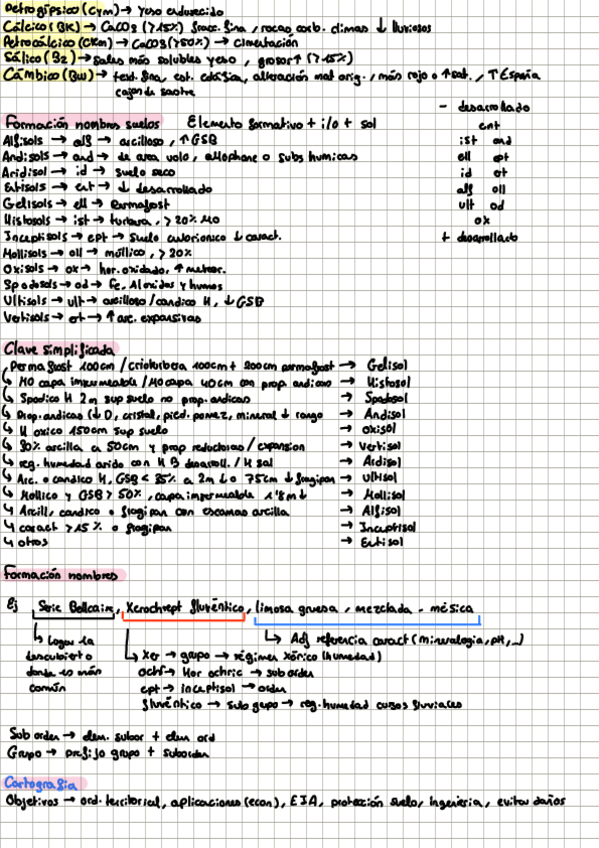 Petrogípsico (Cym) → Yeso endurecido
Cálcico (BK) → CaCO3 (>15%) fracc. fina, rocas carb. climas ↓ lluviosos
Petrocálcico (CKm) → CaCO3 (>50%) → Cimentación
Sálico (Bz) → sales más solubles yeso, grosor ↑ (>15%)
Cámbico (Bw) → text. fina, est. edáfica, alteración mat orig., más rojo o ↑ sat., T España
cajon de sastre
Formación nombres suelos Elemento formativo + i/o + sol
Alfisols → alf → arcilloso, ↑ GSB
Andisols → and → de area volc, allophane o subs humicas
Aridisol → id → suelo seco
Entisols → ent → ↓ desarrollado
Gelisols → ell → Permafrost
Histosols → ist → turbera, > 20% MO
Inceptisols → ept → Suelo ↓ caract.
Mollisols → oll → móllico, > 20%
Oxisols → ox → hor. oxidado, ↑ meteor.
Spodosols → od → Fe, Al oxidos y humus
Ultisols → ult → arcilloso / candico H, ↓ GSB
Vertisols → ert → ↑ arc. expansivas
- desarrollado
ent
ist and
ell ept
id ert
alf oll
ult od
ox
+ desarrollado
Clave simplificada
Permafrost 100cm / crioturbera 100cm + 200cm permafrost → Gelisol
↳ MO capa impermeable / MO capa 40cm con prop. andicas → Histosol
↳ Spodico H 2m sup suelo no prop. andicas → Spodosol
↳ Prop. andicas (↓ D, cristal, pied. pomez, mineral ↓ rango → Andisol
↳ H oxico 150cm sup suelo → Oxisol
↳ 30% arcilla a 50cm y prop reductoras / expansion → Vertisol
↳ reg. humedad arido con H B desarroll. / H sal → Ardisol
↳ Arc. o candico H, GSB < 35% a 2m ↓ o 75cm ↓ fragipan → Ultisol
↳ Mollico y GSB > 50%, capa impermeable 1'8m ↓ → Mollisol
↳ Arcill, candico o fragipan con escamas arcilla → Alfisol
↳ caract > 15% o fragipan → Inceptisol
↳ otros → Entisol
Formación nombres
Ej Serie Bellcaire, Xerochrept fluvéntico, limosa gruesa, mezclada - mésica
↳ Lugar la descubierto donde es más común
↳ Adj referencia caract (mineralogia, pH, ...)
↳ Xer → grupo → régimen Xérico (humedad)
ochr → Hor ochric → suborder
ept → inceptisol → orden
fluvéntico → Sub grupo → reg. humedad cursos fluviales
Sub orden → elem. subor + elem ord
Grupo → prefijo grupo + suborden
Cartografia
Objetivos → ord. territorial, aplicaciones (econ), EIA, protección suelo, ingenieria, evitar daños